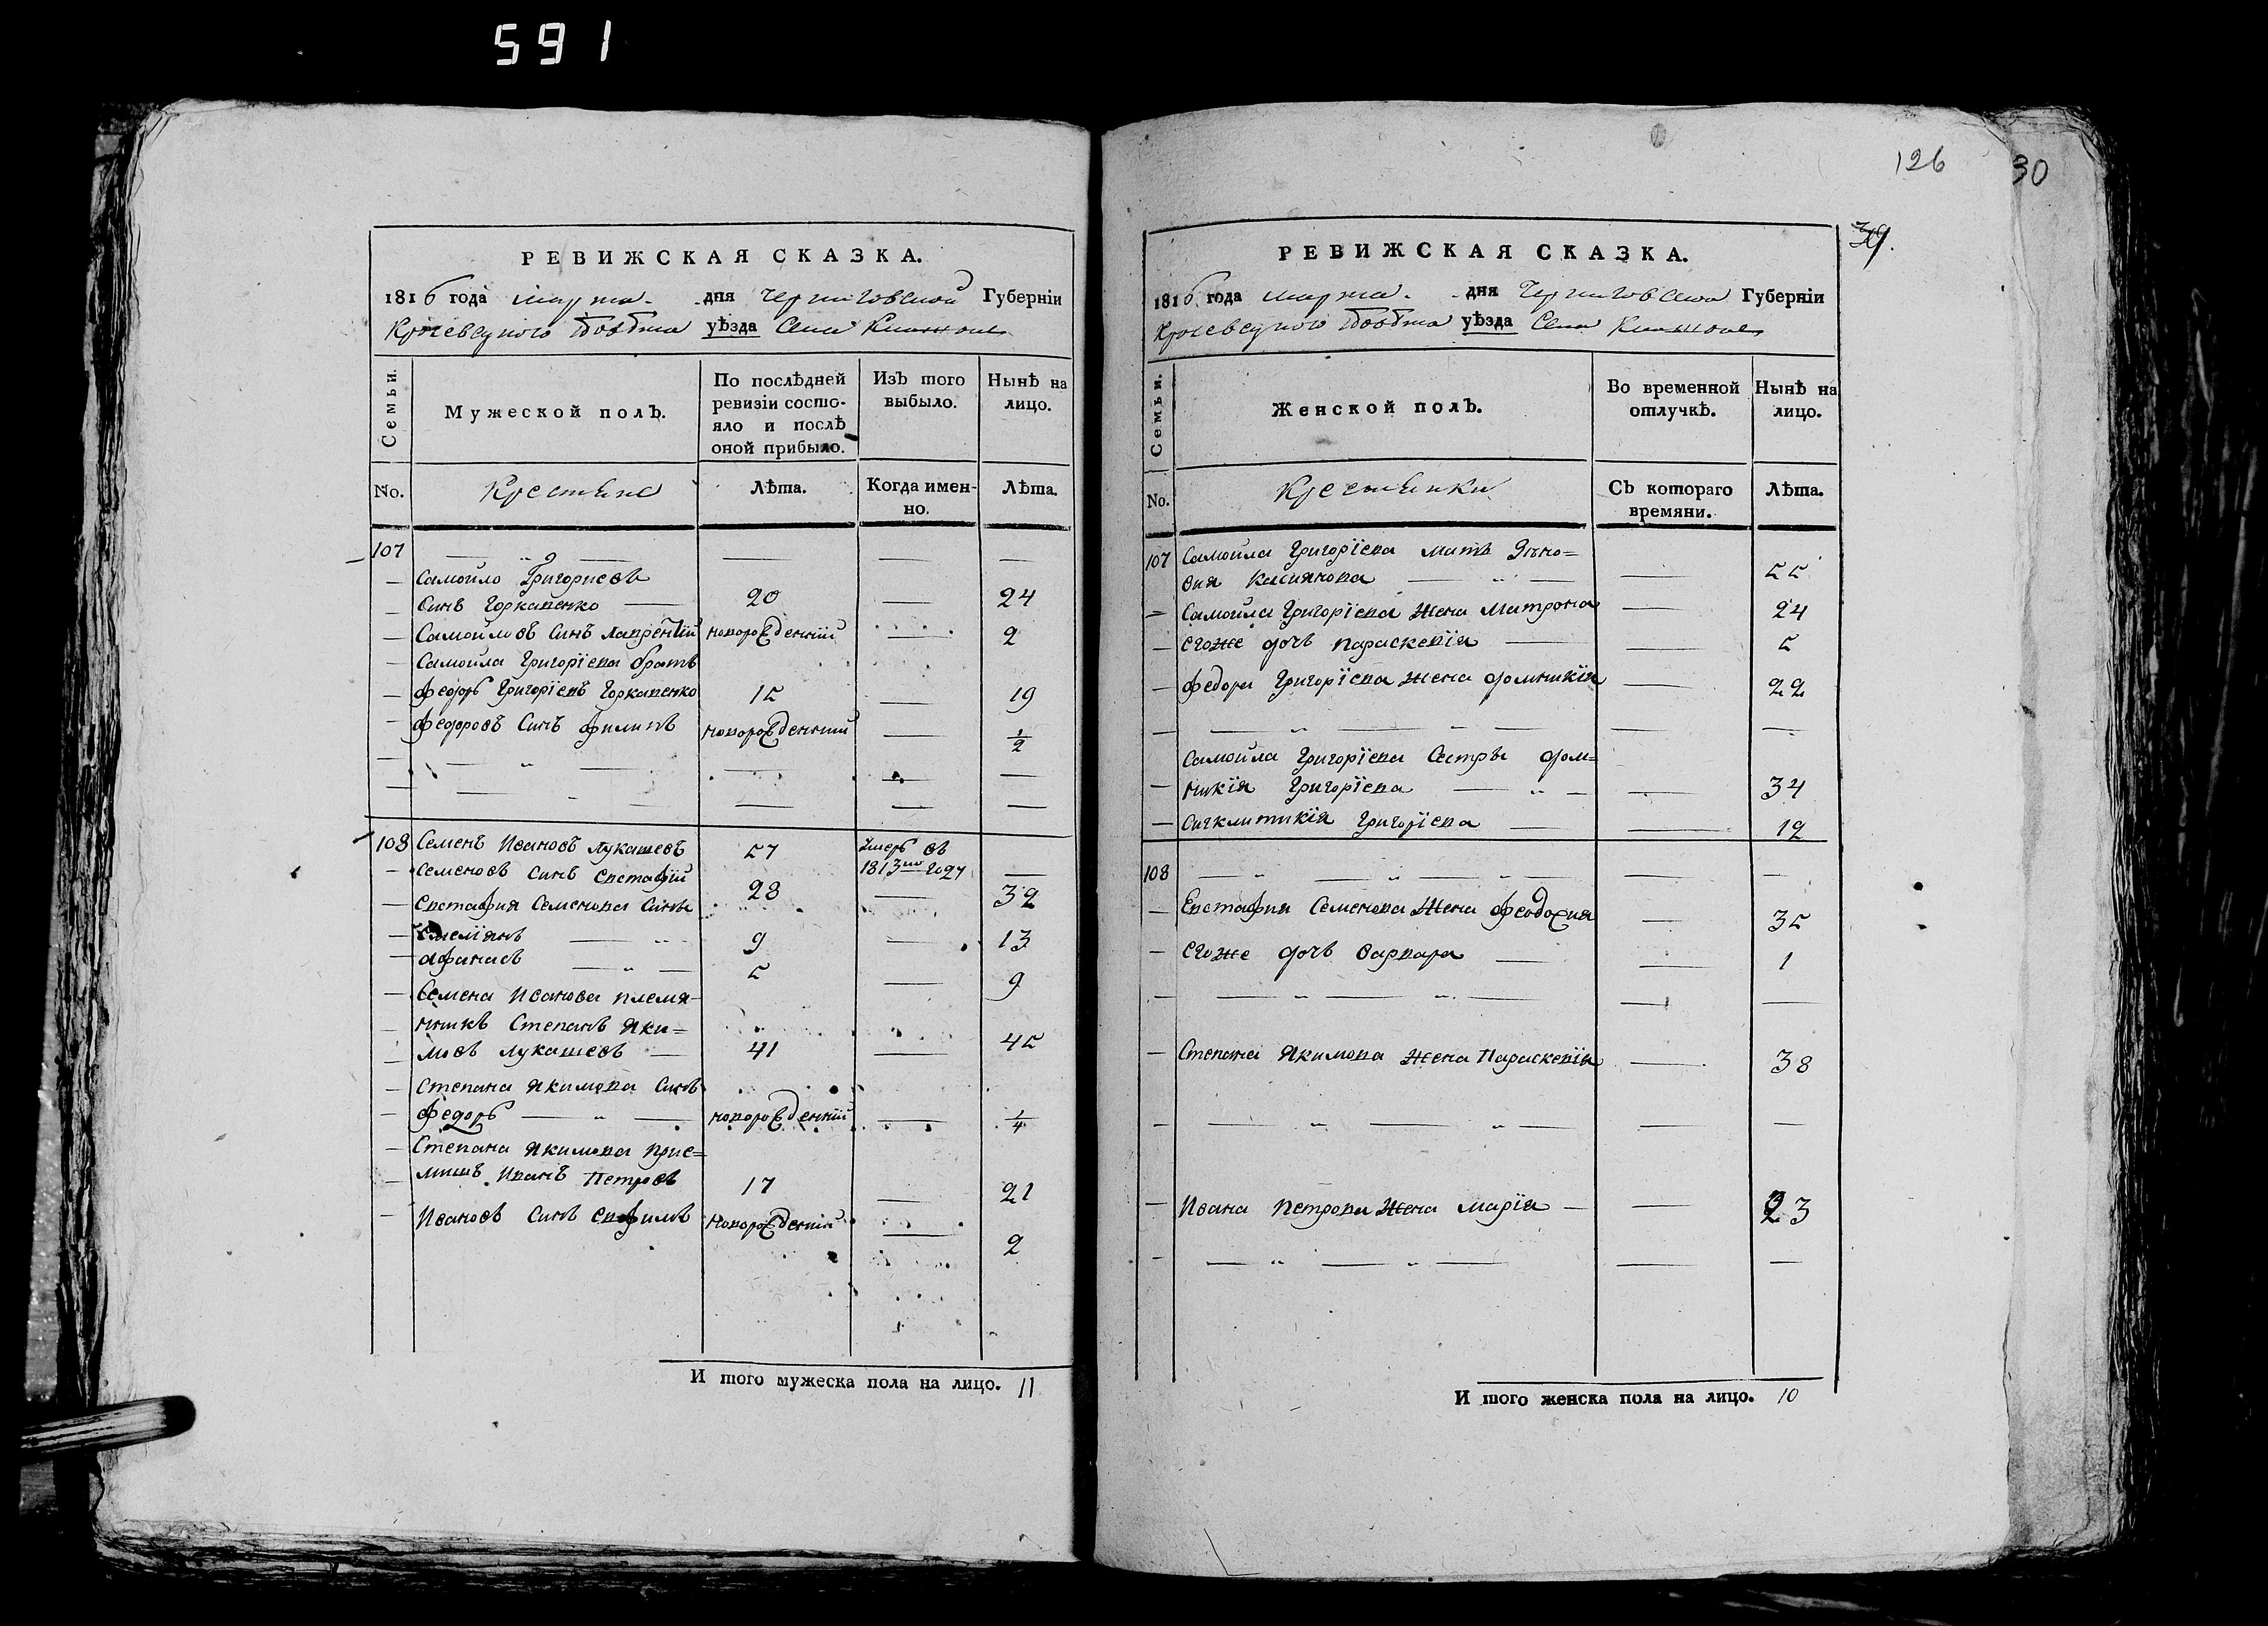 591
РЕВИЖСКАЯ СКАЗКА.
1816 года марта дня Черниговской Губерніи
Кролевецкого Повѣта уѣзда Села
Семьи.
Мужеской полъ.
По послѣдней ревизіи состо-
яло и послѣ оной прибыло.
Изъ того выбыло.
Нынѣ на лицо.
No.
Крестьяне
Лѣта.
Когда имен-
но.
Лѣта.
107
Самойло Григориевъ
Синъ Горкавенко 20 24
Самойловъ Синъ Лаврентій новорожденній 2
Самойла Григоріева братъ
Федоръ Григоріевъ Горкавенко 15 19
Федоровъ Синъ Филипъ новорожденний 1/2
108 Семенъ Ивановъ Лукашевъ 57 Умеръ въ
1813мъ году
Семеновъ Синъ Евстафій 28 32
Евстафия Семенова Сины
Емелїянъ 9 13
Афанасъ 5 9
Семена Иванова племя-
нникъ Степанъ Яки=
мовъ Лукашевъ 41 45
Степана Якимова Синъ
Федоръ новорожденній 1/4
Степана Якимова прие=
мишъ Иванъ Петровъ 17 21
Ивановъ Синъ Евфимъ новорожденній 2
И того мужеска пола на лицо. 11
126 30
39.
РЕВИЖСКАЯ СКАЗКА.
1816 года марта дня Черниговской Губерніи
Кролевецкого Повѣта уѣзда Села
Семьи.
Женской полъ.
Во временной отлучкѣ.
Нынѣ на лицо.
No.
Крестьянки
Съ котораго времяни.
Лѣта.
107 Самойла Григорїева мать Зѣно=
вия Касиянова 55
Самойла Григорїева Жена Матрона 24
Егоже дочъ Параскевїя 5
Федора Григорїева Жена Домникїя 22
Самойла Григорїева Сестры Дом=
никїя Григорїева 34
Сигклитикїя Григорїева 12
108
Евстафия Семенова Жена Феодосия 35
Егоже дочъ Варвара 1
Степана Якимова Жена Параскевїя 38
Ивана Петрова Жена Марїя 23
И того женска пола на лицо. 10